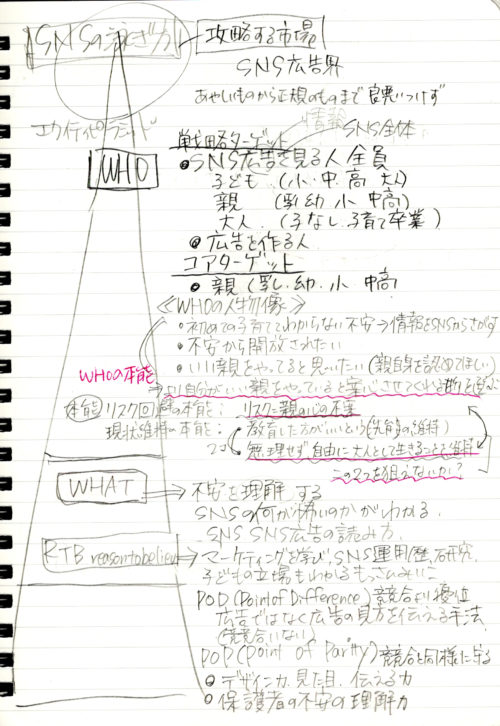 SNSの
攻略する市場
SNS広告界
あやしいものから正規のものまで 良悪いつけず
エクイティピラミッド
情報 SNS全体
戦略ターゲット
WHO
SNS広告を見る人 全員
子ども (小、中、高 大人)
親 (乳 幼 小 中高)
大人 (子なし、子育て卒業)
広告を作る人
コアターゲット
親 (乳、幼、小 中高)
《WHOの人物像》
・初めての子育てでわからない不安→情報をSNSからさがす
・不安から開放されたい
・いい親をやってると思いたい (親自身を認めてほしい)
WHOの本能
より自分がいい親をやっていると安心させてくれる
本能
リスク回避の本能: リスク=親の心の不安
現状維持の本能: 教育した方がいいという の維持
無理せず自由に大人として生きること を維持
この2つを狙えないか?
WHAT → 不安を理解する
SNSの何が怖いのかがわかる
SNS SNS広告の読み方
RTB reason to believe → マーケティングを学び、SNS運用歴、研究
子どもの立場もわかる
POD (Point of Difference) 競合より優位
広告ではなく広告の見方を伝える手法
(競合いない)
POP (Point of Parity) 競合と同様に守る
デザイン力、見た目、伝える力
保護者の不安の理解力